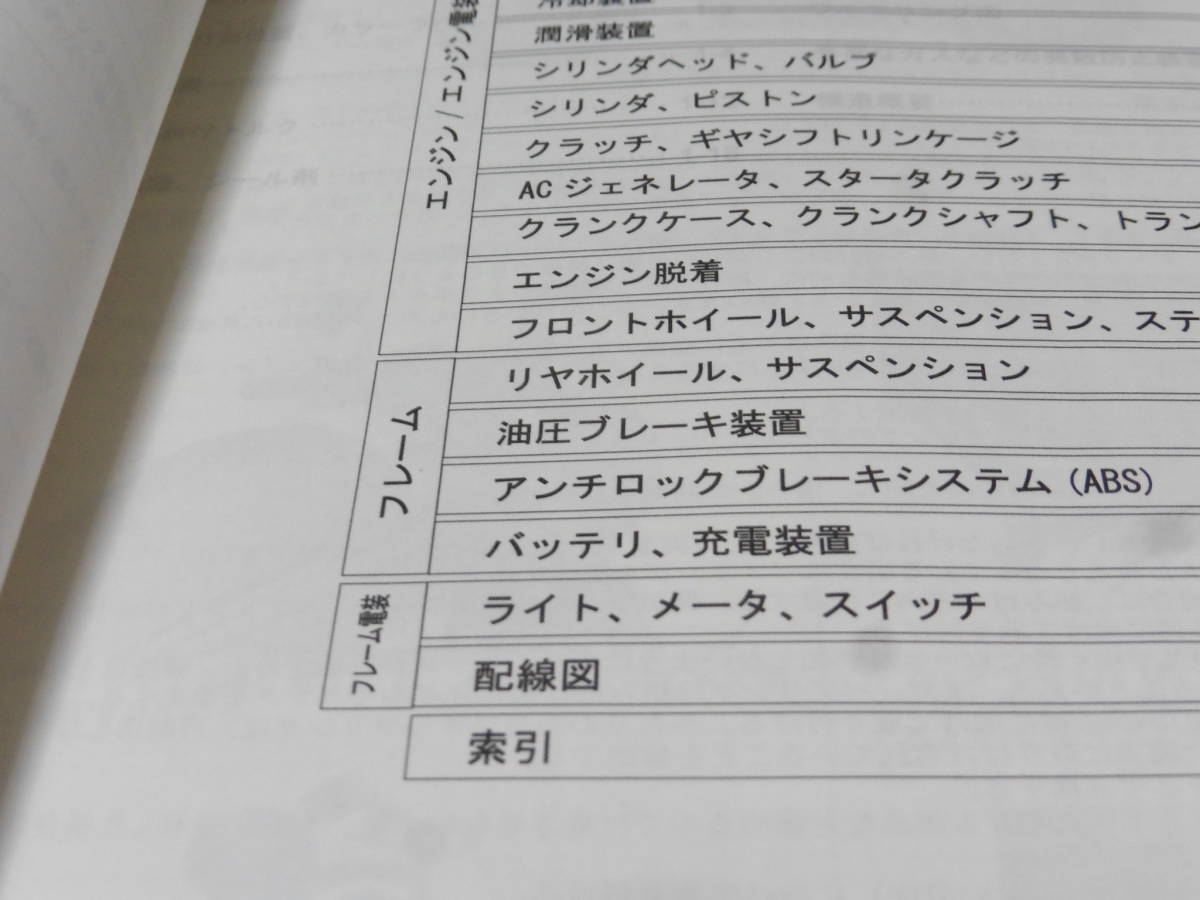 エンジン/エンジン電装
冷却装置
潤滑装置
シリンダヘッド、バルブ
シリンダ、ピストン
クラッチ、ギヤシフトリンケージ
AC ジェネレータ、スタータクラッチ
クランクケース、クランクシャフト、トラン
エンジン脱着
フロントホイール、サスペンション、ステ
フレーム
リヤホイール、サスペンション
油圧ブレーキ装置
アンチロックブレーキシステム (ABS)
バッテリ、充電装置
フレーム電装
ライト、メータ、スイッチ
配線図
索引